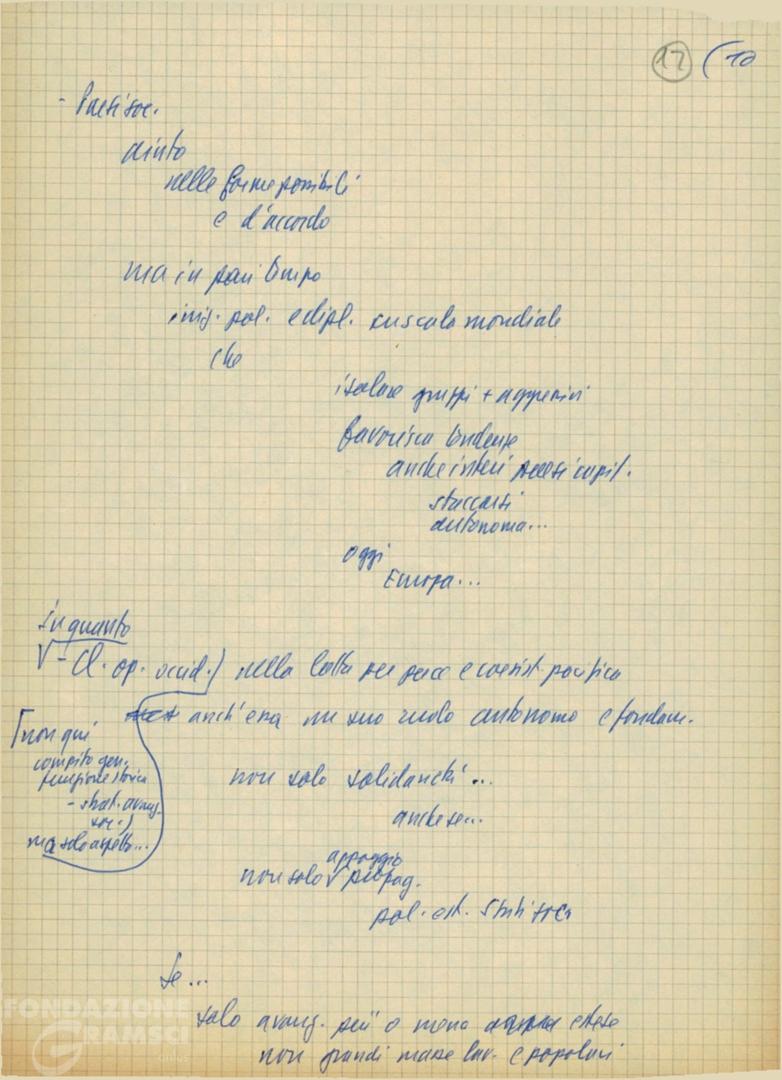 17 (10
- Paesi soc.
aiuto
nelle forme possibili
e d'accordo
ma in pari tempo
iniz. pol. e dipl. su scala mondiale
che
isolare gruppi + aggressivi
favorisca tendenze
anche interi paesi capit.
staccarsi
autonoma...
oggi
Europa...
In quanto
V - Cl. op. occid.) nella lotta per pace e coesist. pacifica
anch'essa un suo ruolo autonomo e fondam.
[non qui
compito gen.
funzione storica
- strat. avanz.
soc.)
ma solo aspetto...
non solo solidarietà...
anche se...
appoggio
non solo V propag.
pol. est. Stati soc.
Se...
solo avang. più o meno estese
non grandi masse lav. e popolari
FONDAZIONE
GRAMSCI